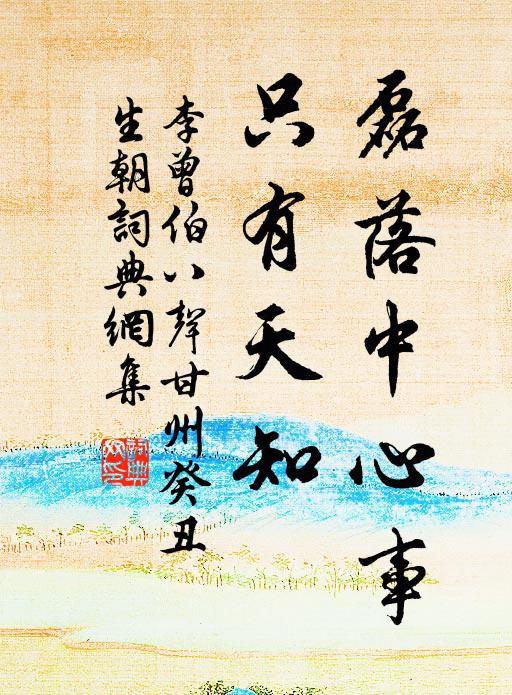 磊落中心事
只有天知
李曾伯八聲甘州癸丑
生朝詞典網集